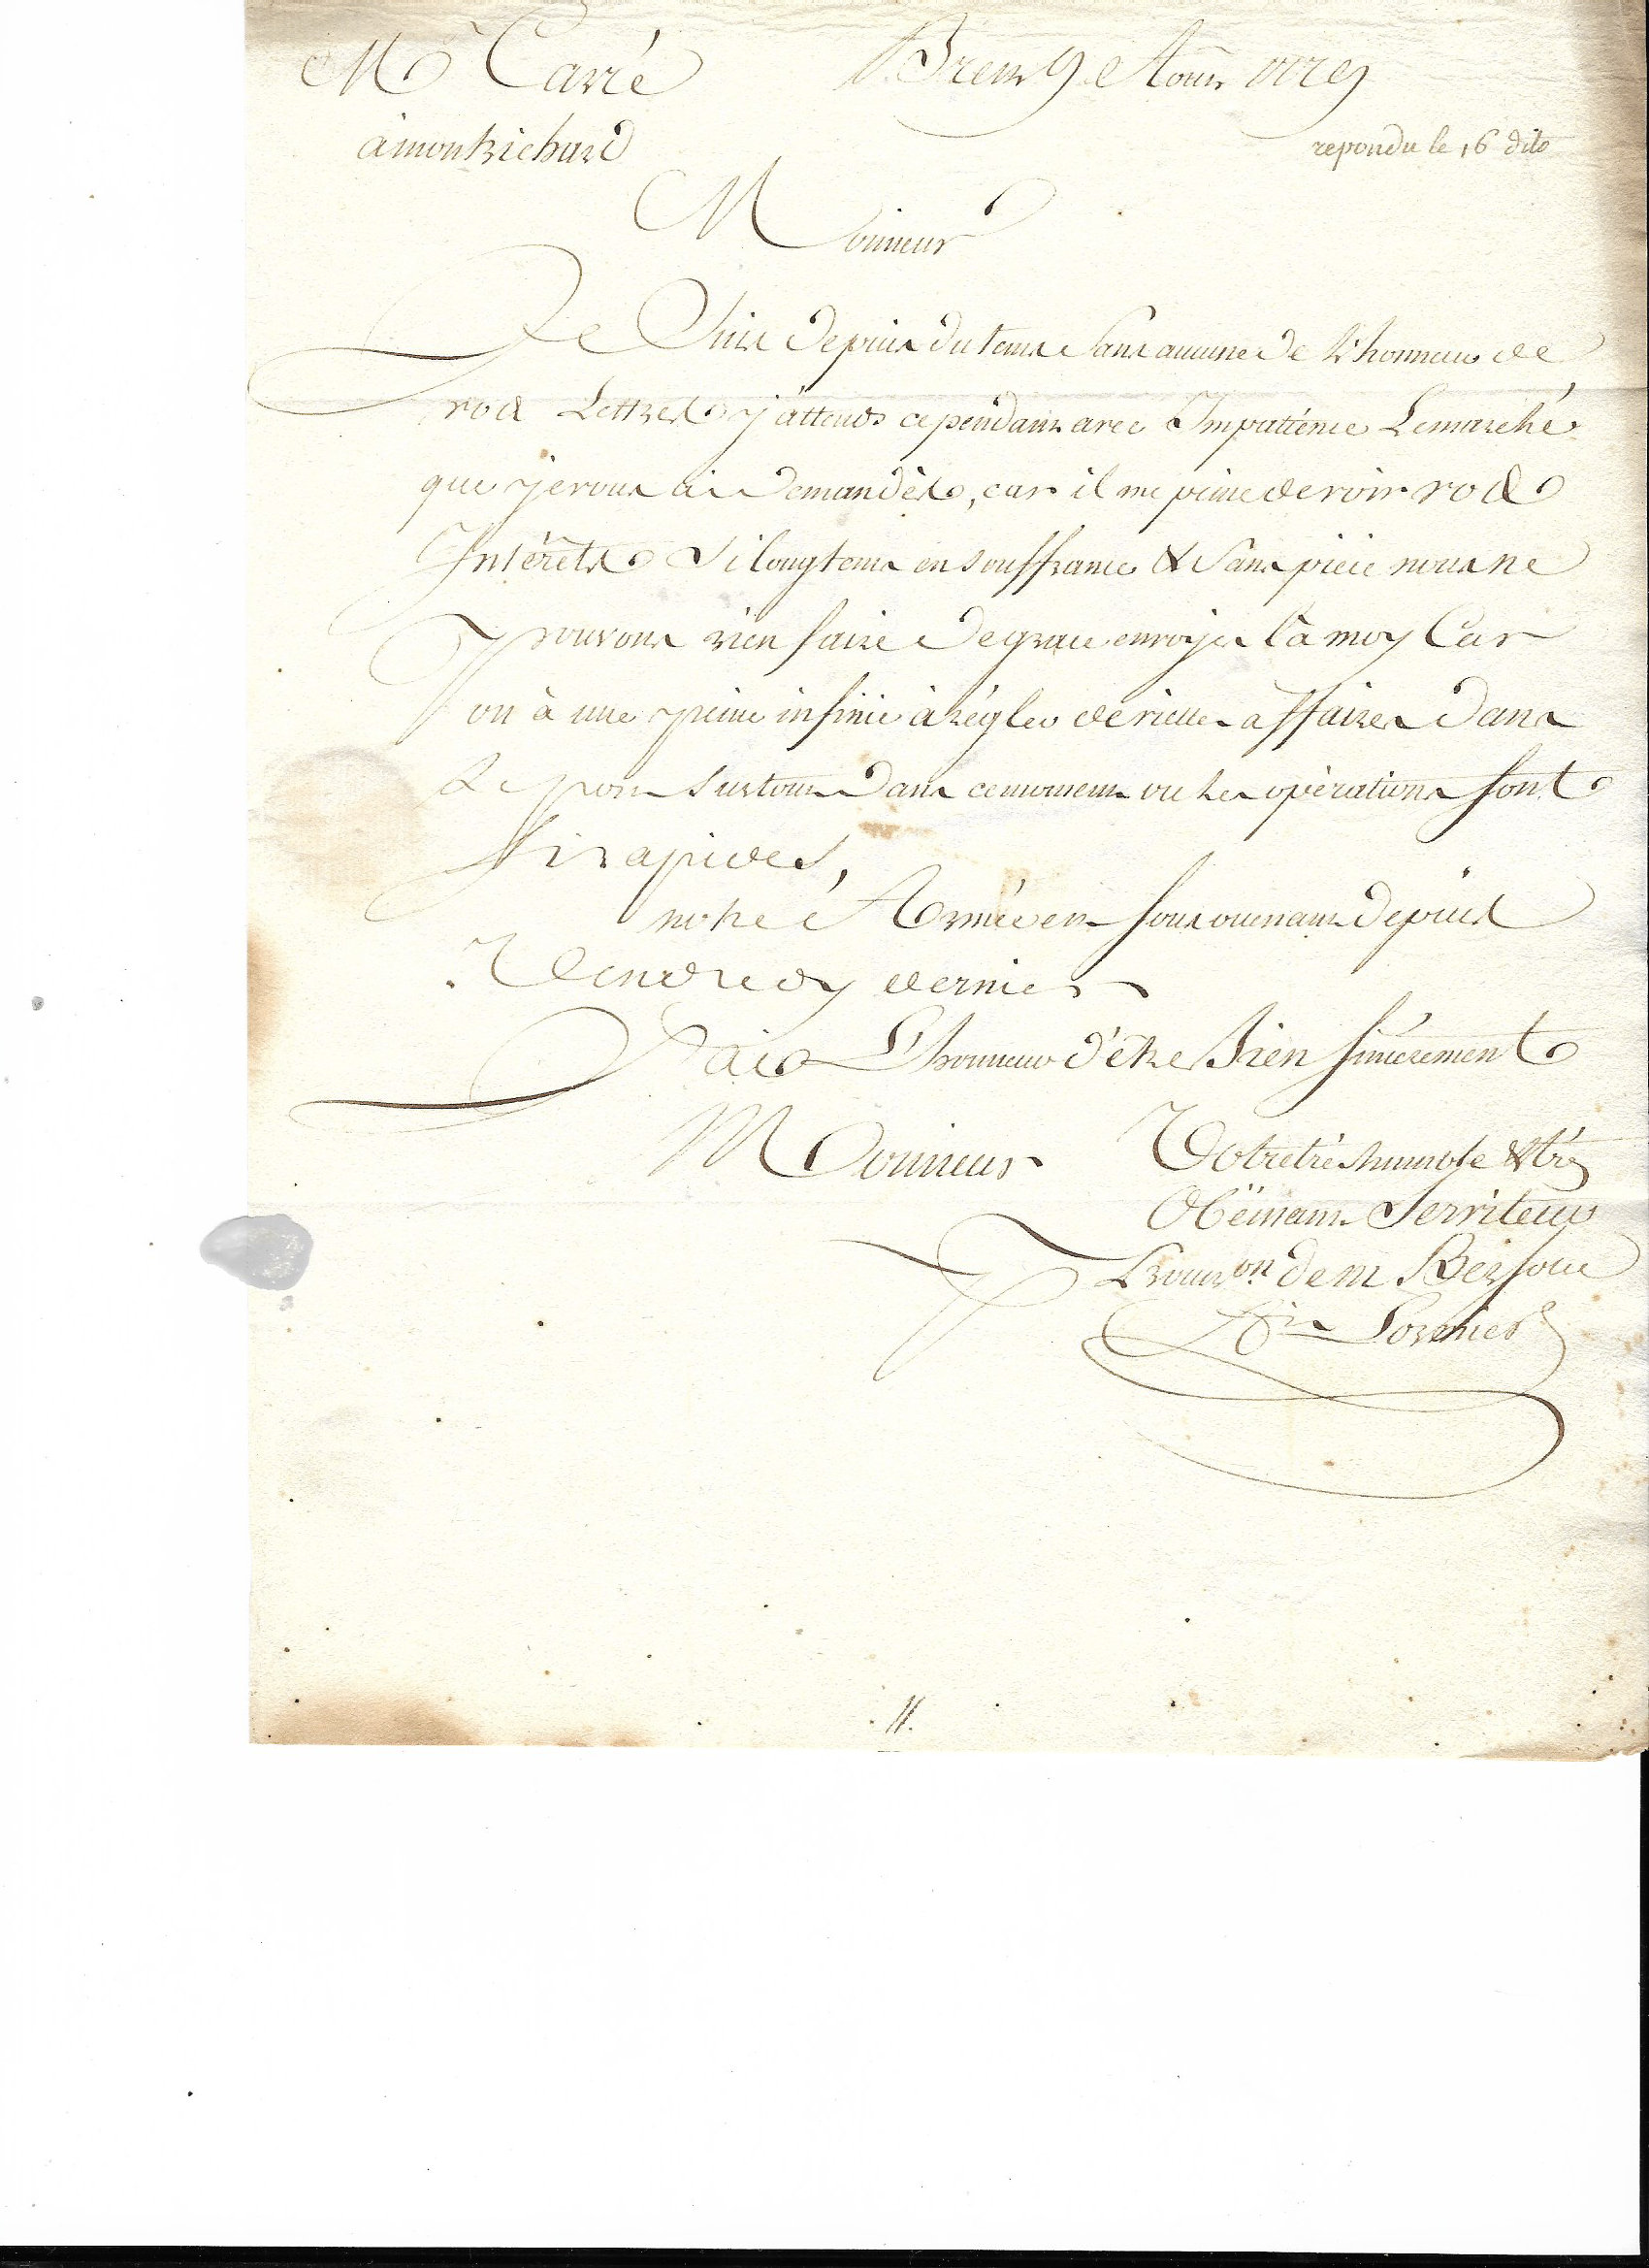 Mr Carré Brest 9 Aoust 1779
à montrichard repondu le 16 dito
Monsieur
Je Suis depuis du tems Sans aucune de L'honneur de
vos Lettres j'attends cependant avec Impatience Le marché
que je vous ai demandés, car il me peine de voir vos
Intérêts Si longtems en souffrance & Sans pièce nous ne
pouvons rien faire de grace envoyés la moy Car
on à une peine infinie à régler de vielles affaires dans
Le port surtout dans ce moment ou les opérations sont
si rapides,
notre Armée en depuis
Vendredy dernier
J'ai L'honneur d'être bien sincerement
Monsieur Votre très humble & très
Obéissant Serviteur
de m Bersolle